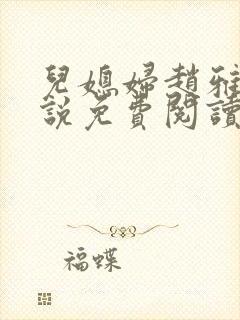 兒媳婦趙雅
說免費閱讀
福蝶